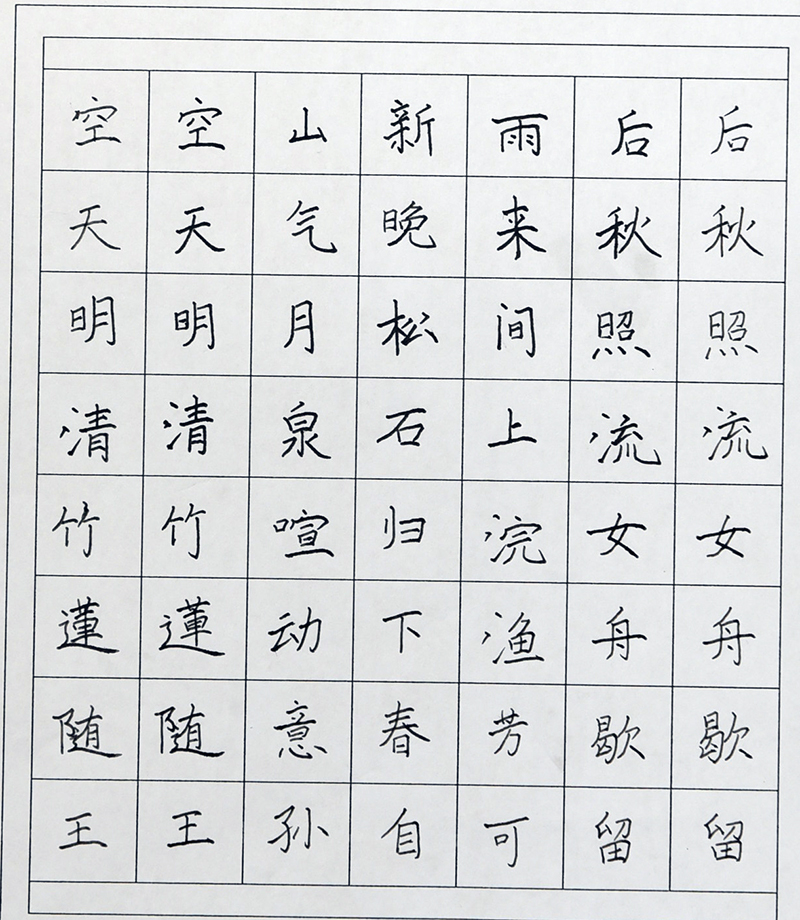 空空山新雨后后
天天气晚来秋秋
明明月松间照照
清清泉石上流流
竹竹喧归浣女女
蓮蓮动下渔舟舟
随随意春芳歇歇
王王孙自可留留